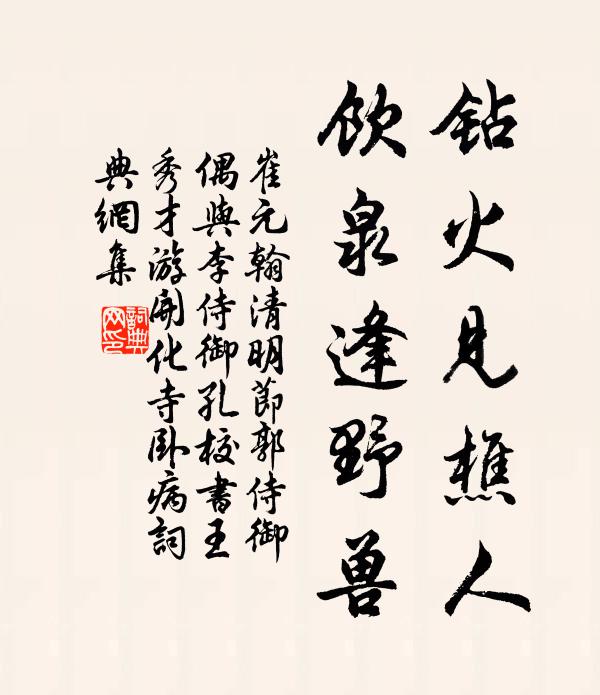 钻火见樵人
饮泉逢野兽
崔元翰清明節郭侍御
偶與李侍御孔校書王
秀才游開化寺卧病詞
典網集
詞典
网印